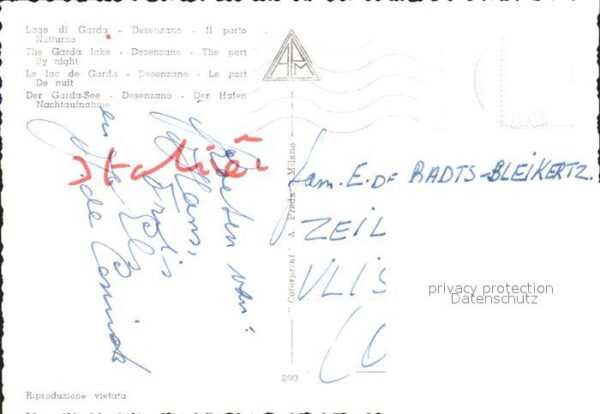 Lago di Garda - Desenzano - Il porto
Notturno
The Garda lake - Desenzano - The port
By night
Le lac de Garda - Desenzano - Le port
De nuit
Der Garda-See - Desenzano - Der Hafen
Nachtaufnahme
APM
Italië
Groeten van:
Hans,
en
de
fam. E. DE RADTS-BLEIKERTZ.
ZEIL
VLIS
privacy protection
Datenschutz
"Colorprint" A. Preda - Milano
290
Riproduzione vietata